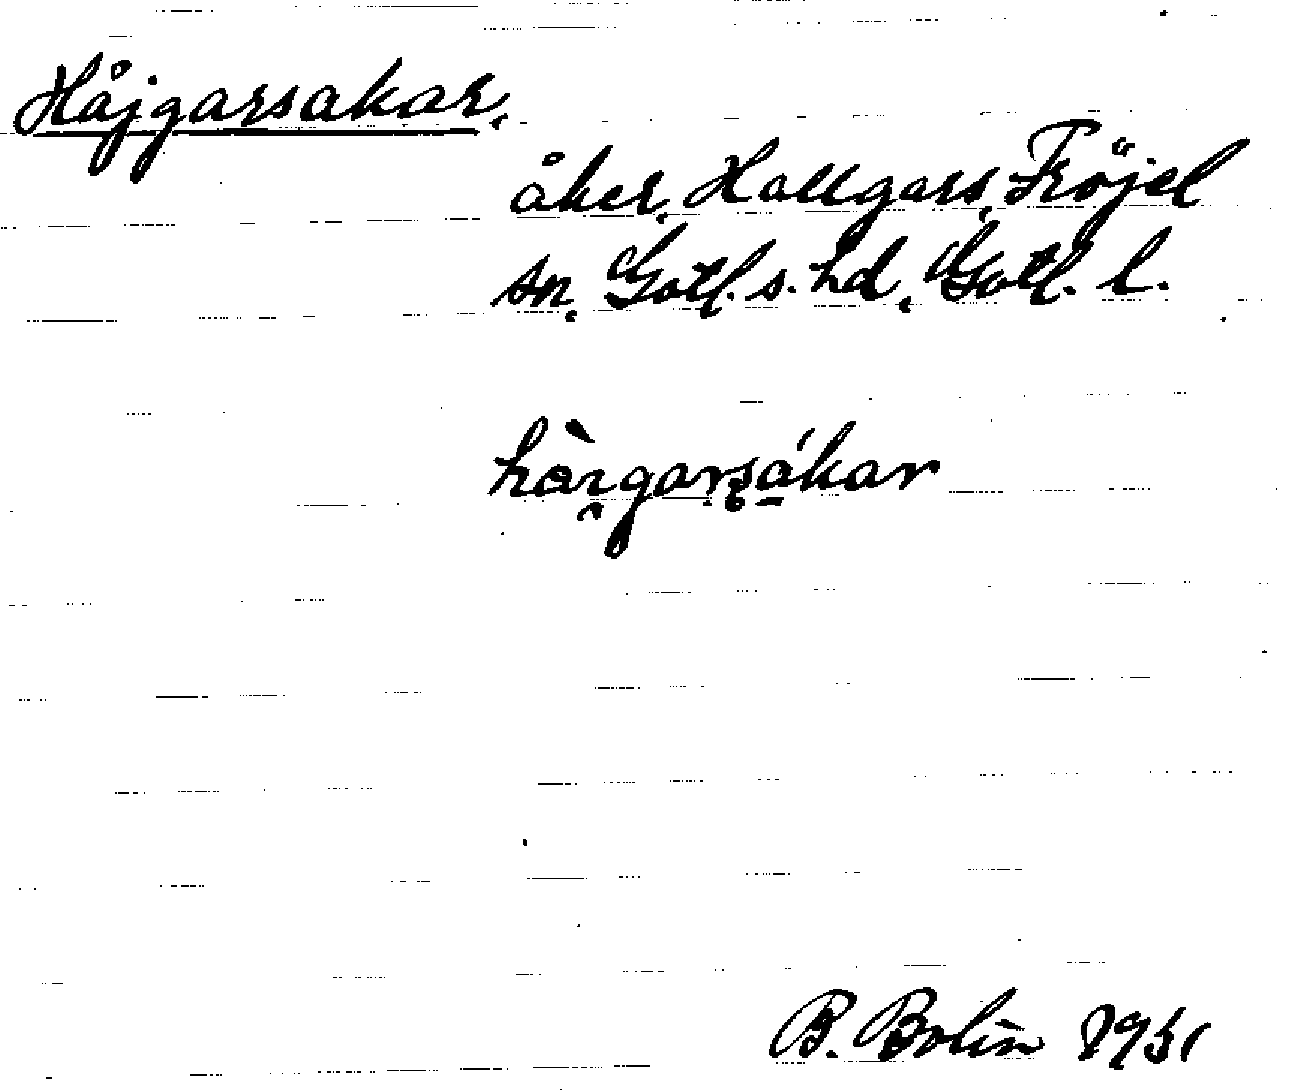 Håjgarsakar,
åker, Hallgars, Fröjel
sn, Gotl. s. hd, Gotl. l.
hàı̯garsákar
B. Bolin 1951